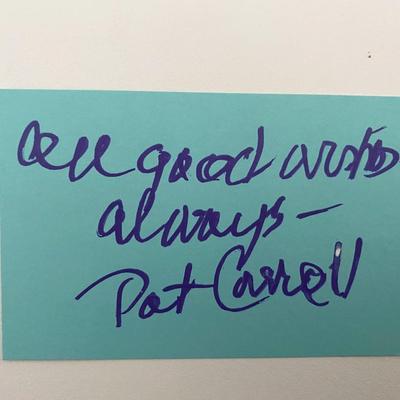 all good wishes
always—
Pat Carroll